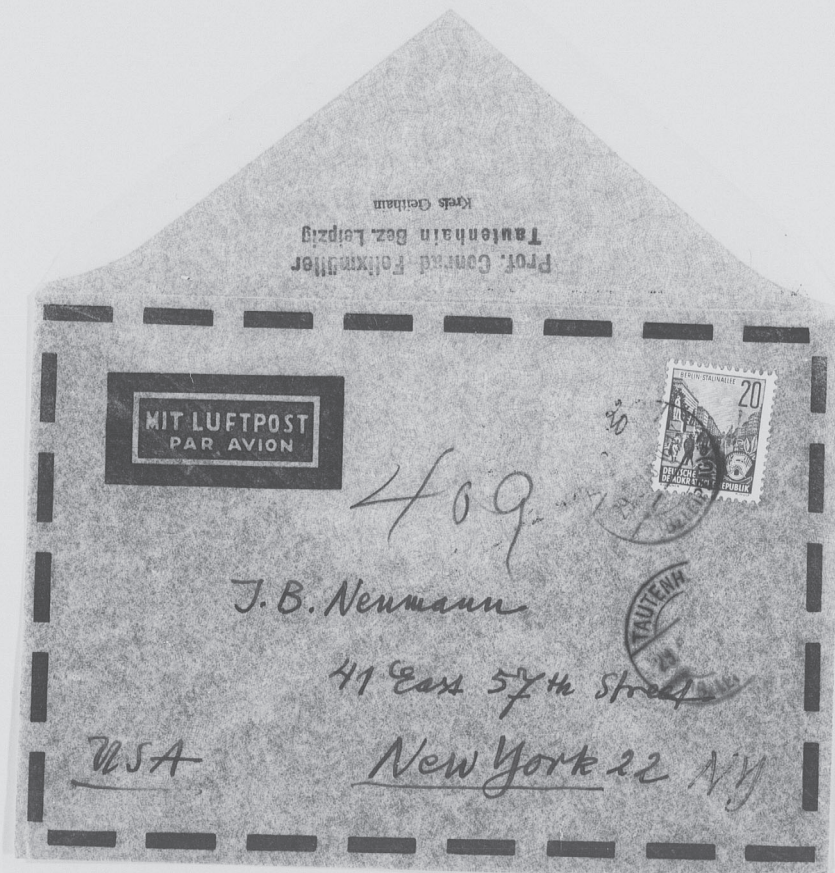 Prof. Conrad Felixmüller
Tautenhain Bez. Leipzig
Kreis Geithain
MIT LUFTPOST
PAR AVION
BERLIN-STALINALLEE
20
DEUTSCHE
DEMOKRATISCHE REPUBLIK
20
409
J. B. Neumann
TAUTENH
41 East 57th Street
USA
New York 22 NY